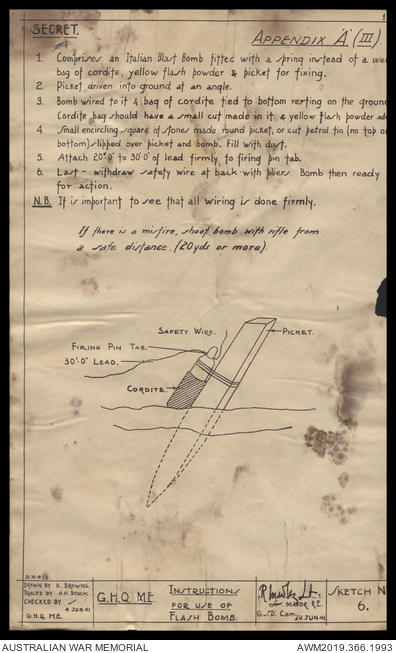 SECRET.
1
APPENDIX 'A' (III)
1. Comprises an Italian Blast Bomb fitted with a spring instead of a
bag of cordite, yellow flash powder & picket for fixing.
2. Picket driven into ground at an angle.
3. Bomb wired to it & bag of cordite tied to bottom resting on the ground
Cordite bag should have a small cut made in it & yellow flash powder
4. Small encircling square of stones made round picket, or cut petrol tin (no top or
bottom) slipped over picket and bomb. Fill with dust.
5. Attach 20'0" to 30'0" of lead firmly, to firing pin tab.
6. Last - withdraw safety wire at back with pliers. Bomb then ready
for action.
N.B. It is important to see that all wiring is done firmly.
If there is a misfire, shoot bomb with rifle from
a safe distance. (20yds or more).
SAFETY WIRE.
PICKET.
FIRING PIN TAB.
30'-0" LEAD.
CORDITE.
DRAWN BY K. BROWNE
TRACED BY
CHECKED BY
4 JUN 41
G.H.Q. M.E.
G.H.Q. M.E.
INSTRUCTIONS
FOR USE OF
FLASH BOMB.
MAJOR, R.E.
G.S.D. Cam.
JUN 41
SKETCH N
6.
AUSTRALIAN WAR MEMORIAL
AWM2019.366.1993